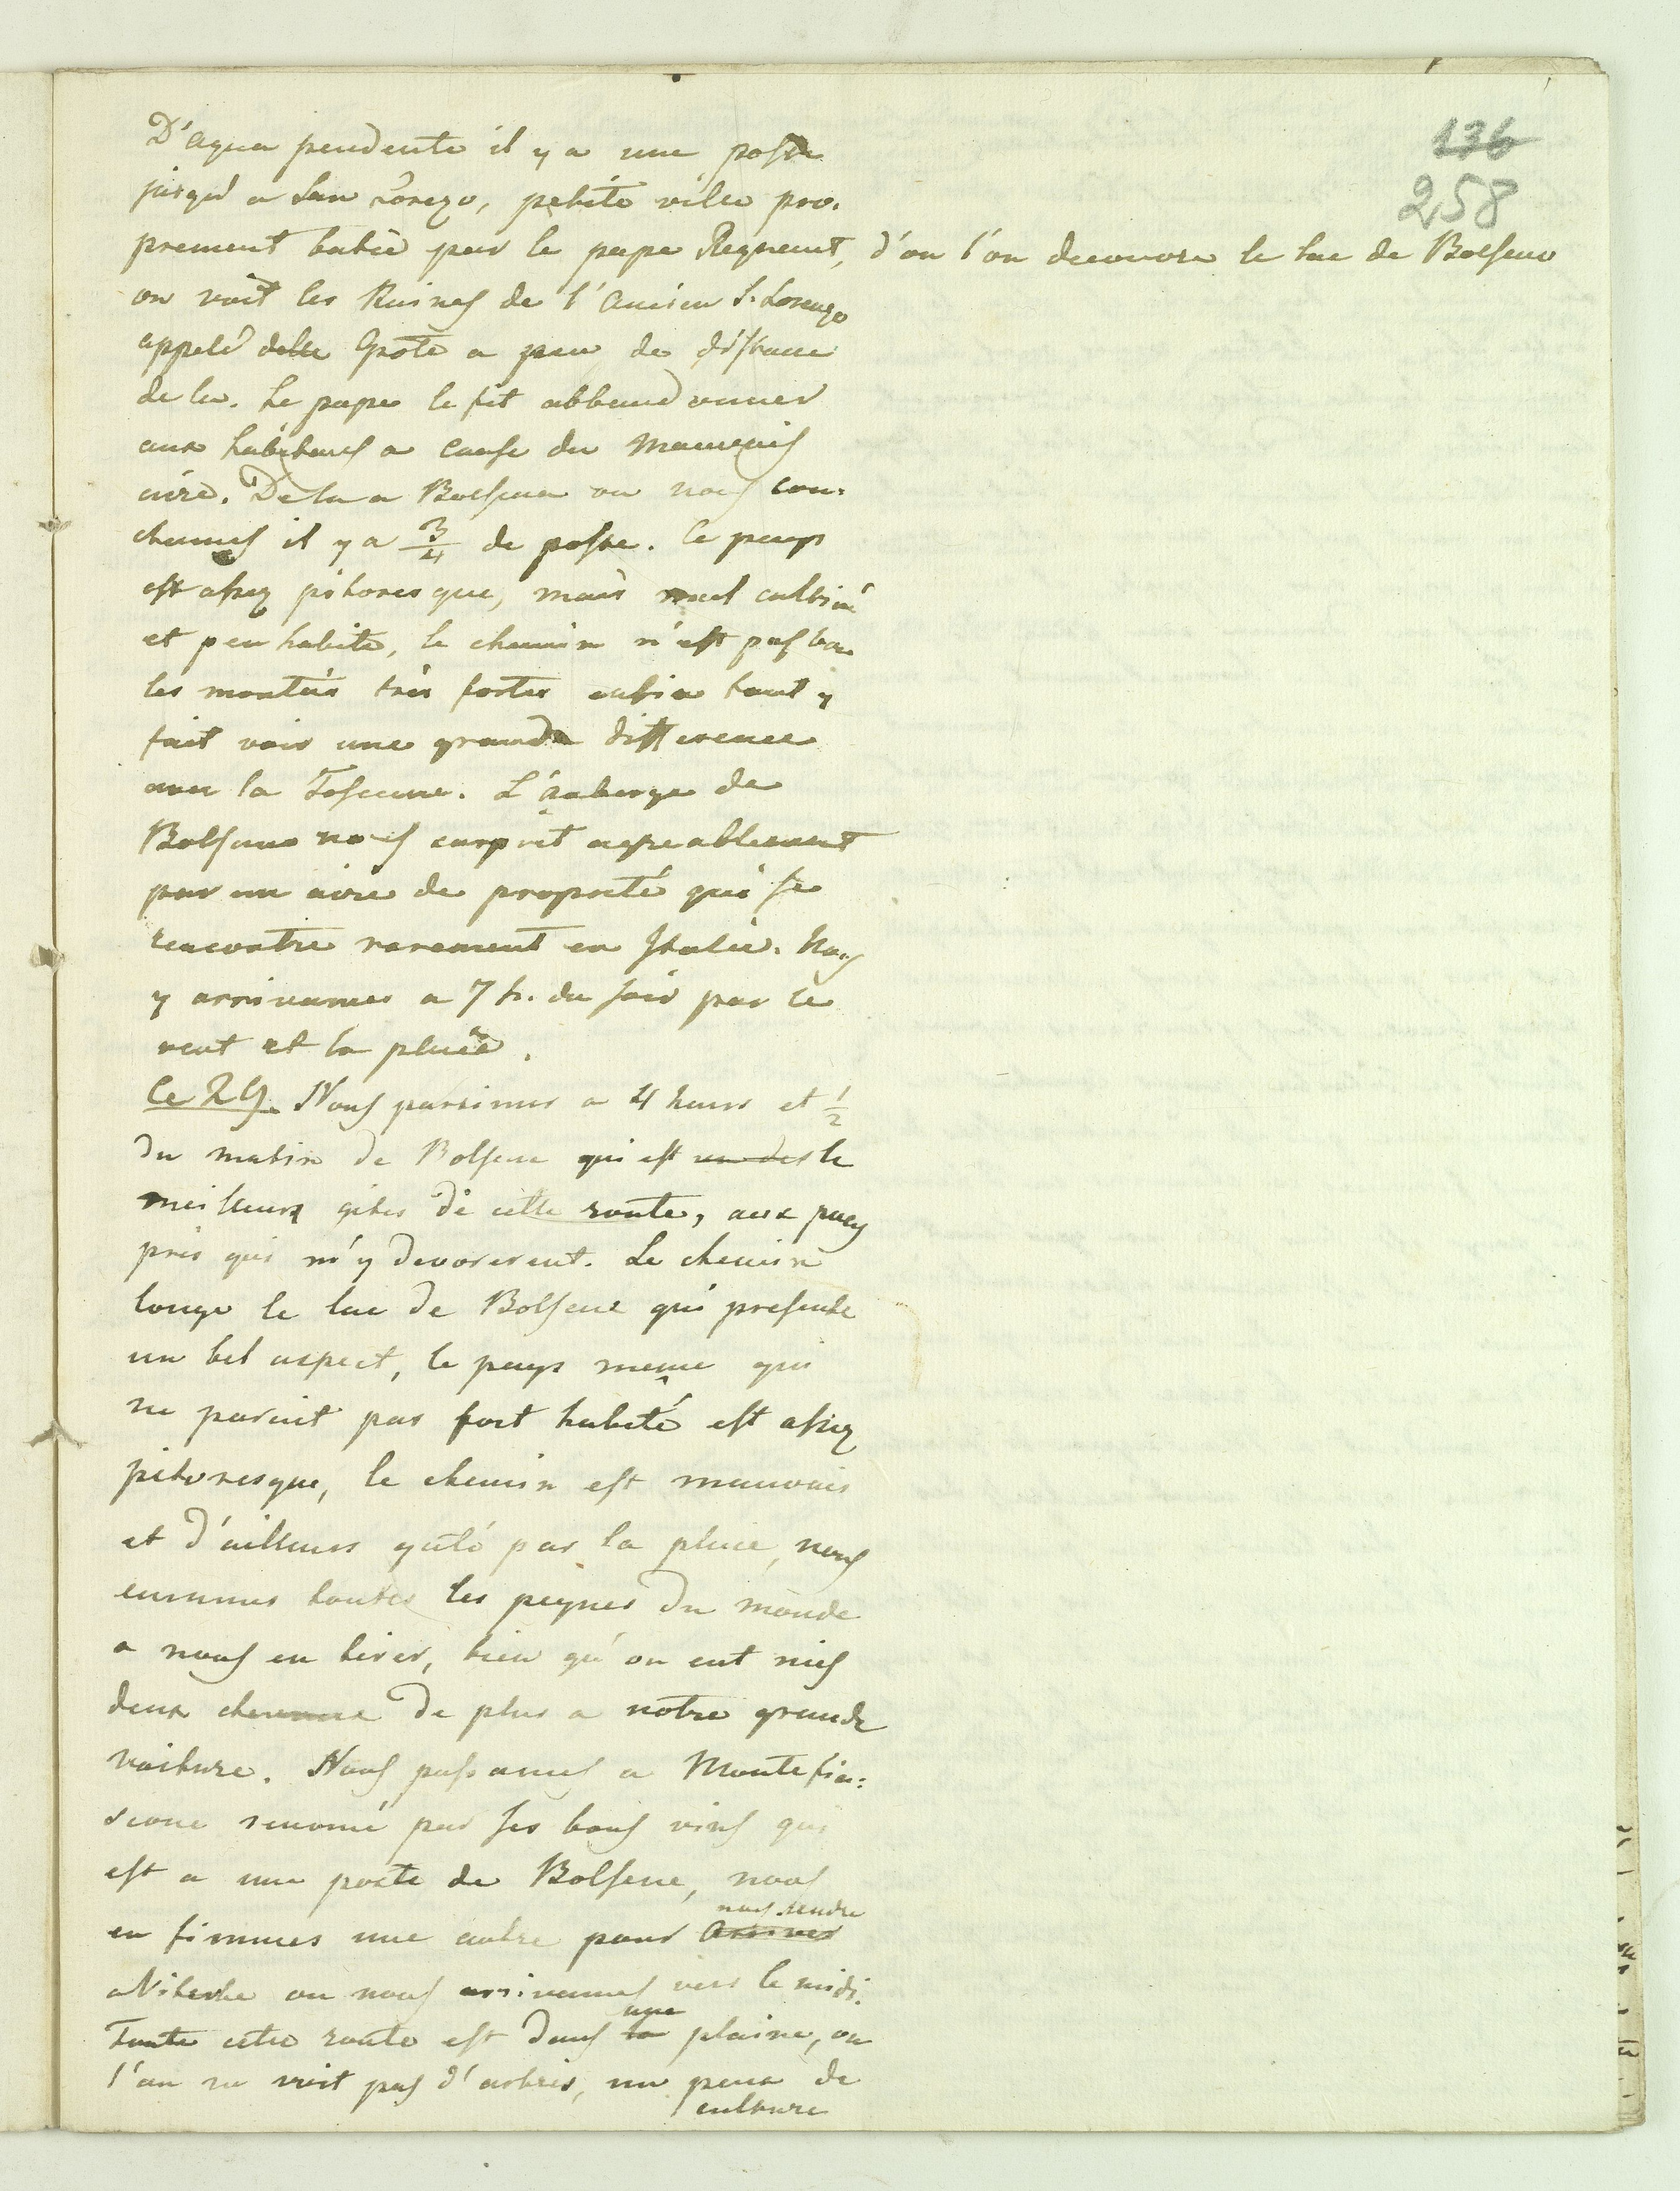 136
258
D'aqua pendente il y a une poste
jusqu'a San Lorezo, petite ville pro-
prement batie par le pape Regnent, d'ou l'on decouvre le lac de Bolseno
on voit les Ruines de l'ancien S. Lorenzo
appelé delle Grote a peu de distance
de la. Le pape le fit abbandonner
aux habitans a cause du Mauvais
aire. De la a Bolsena ou nous cou-
chames il y a 3/4 de poste. Ce pays
est assez pitoresque, mais mal cultivé
et peu habité, le chemin n'est pas bon
les montées très fortes enfin tout y
fait voir une grande difference
avec la Toscane. L'auberge de
Bolsena nous surprit agreablement
par un aire de propreté qui se
rencontre rarement en Italie. Nous
y arrivames a 7 h. du soir par le
vent et la pluie.
Ce 29. Nous partimes a 4 heurs et 1/2
du matin de Bolsene qui est un des le
meilleurs gites de cette route, aux puces
près qui m'y devorerent. Le chemin
longe le lac de Bolsene qui presente
un bel aspect, le pays meme qui
ne paroit pas fort habité est assez
pitoresque, le chemin est mauvais
et d'ailleurs gaté par la pluie, nous
eummes toutes les peines du monde
a nous en tirer, bien qu'on eut mis
deux chevaux de plus a notre grande
voiture. Nous passames a Montefia-
scone renomé par ses bons vins qui
est a une poste de Bolsene, nous
en fimmes une autre pour arriver nous rendre
a Viterbe ou nous arrivames vers le midi.
Toute cette route est dans la une plaine, ou
l'on ne voit pas d'arbres, un peux de
culture